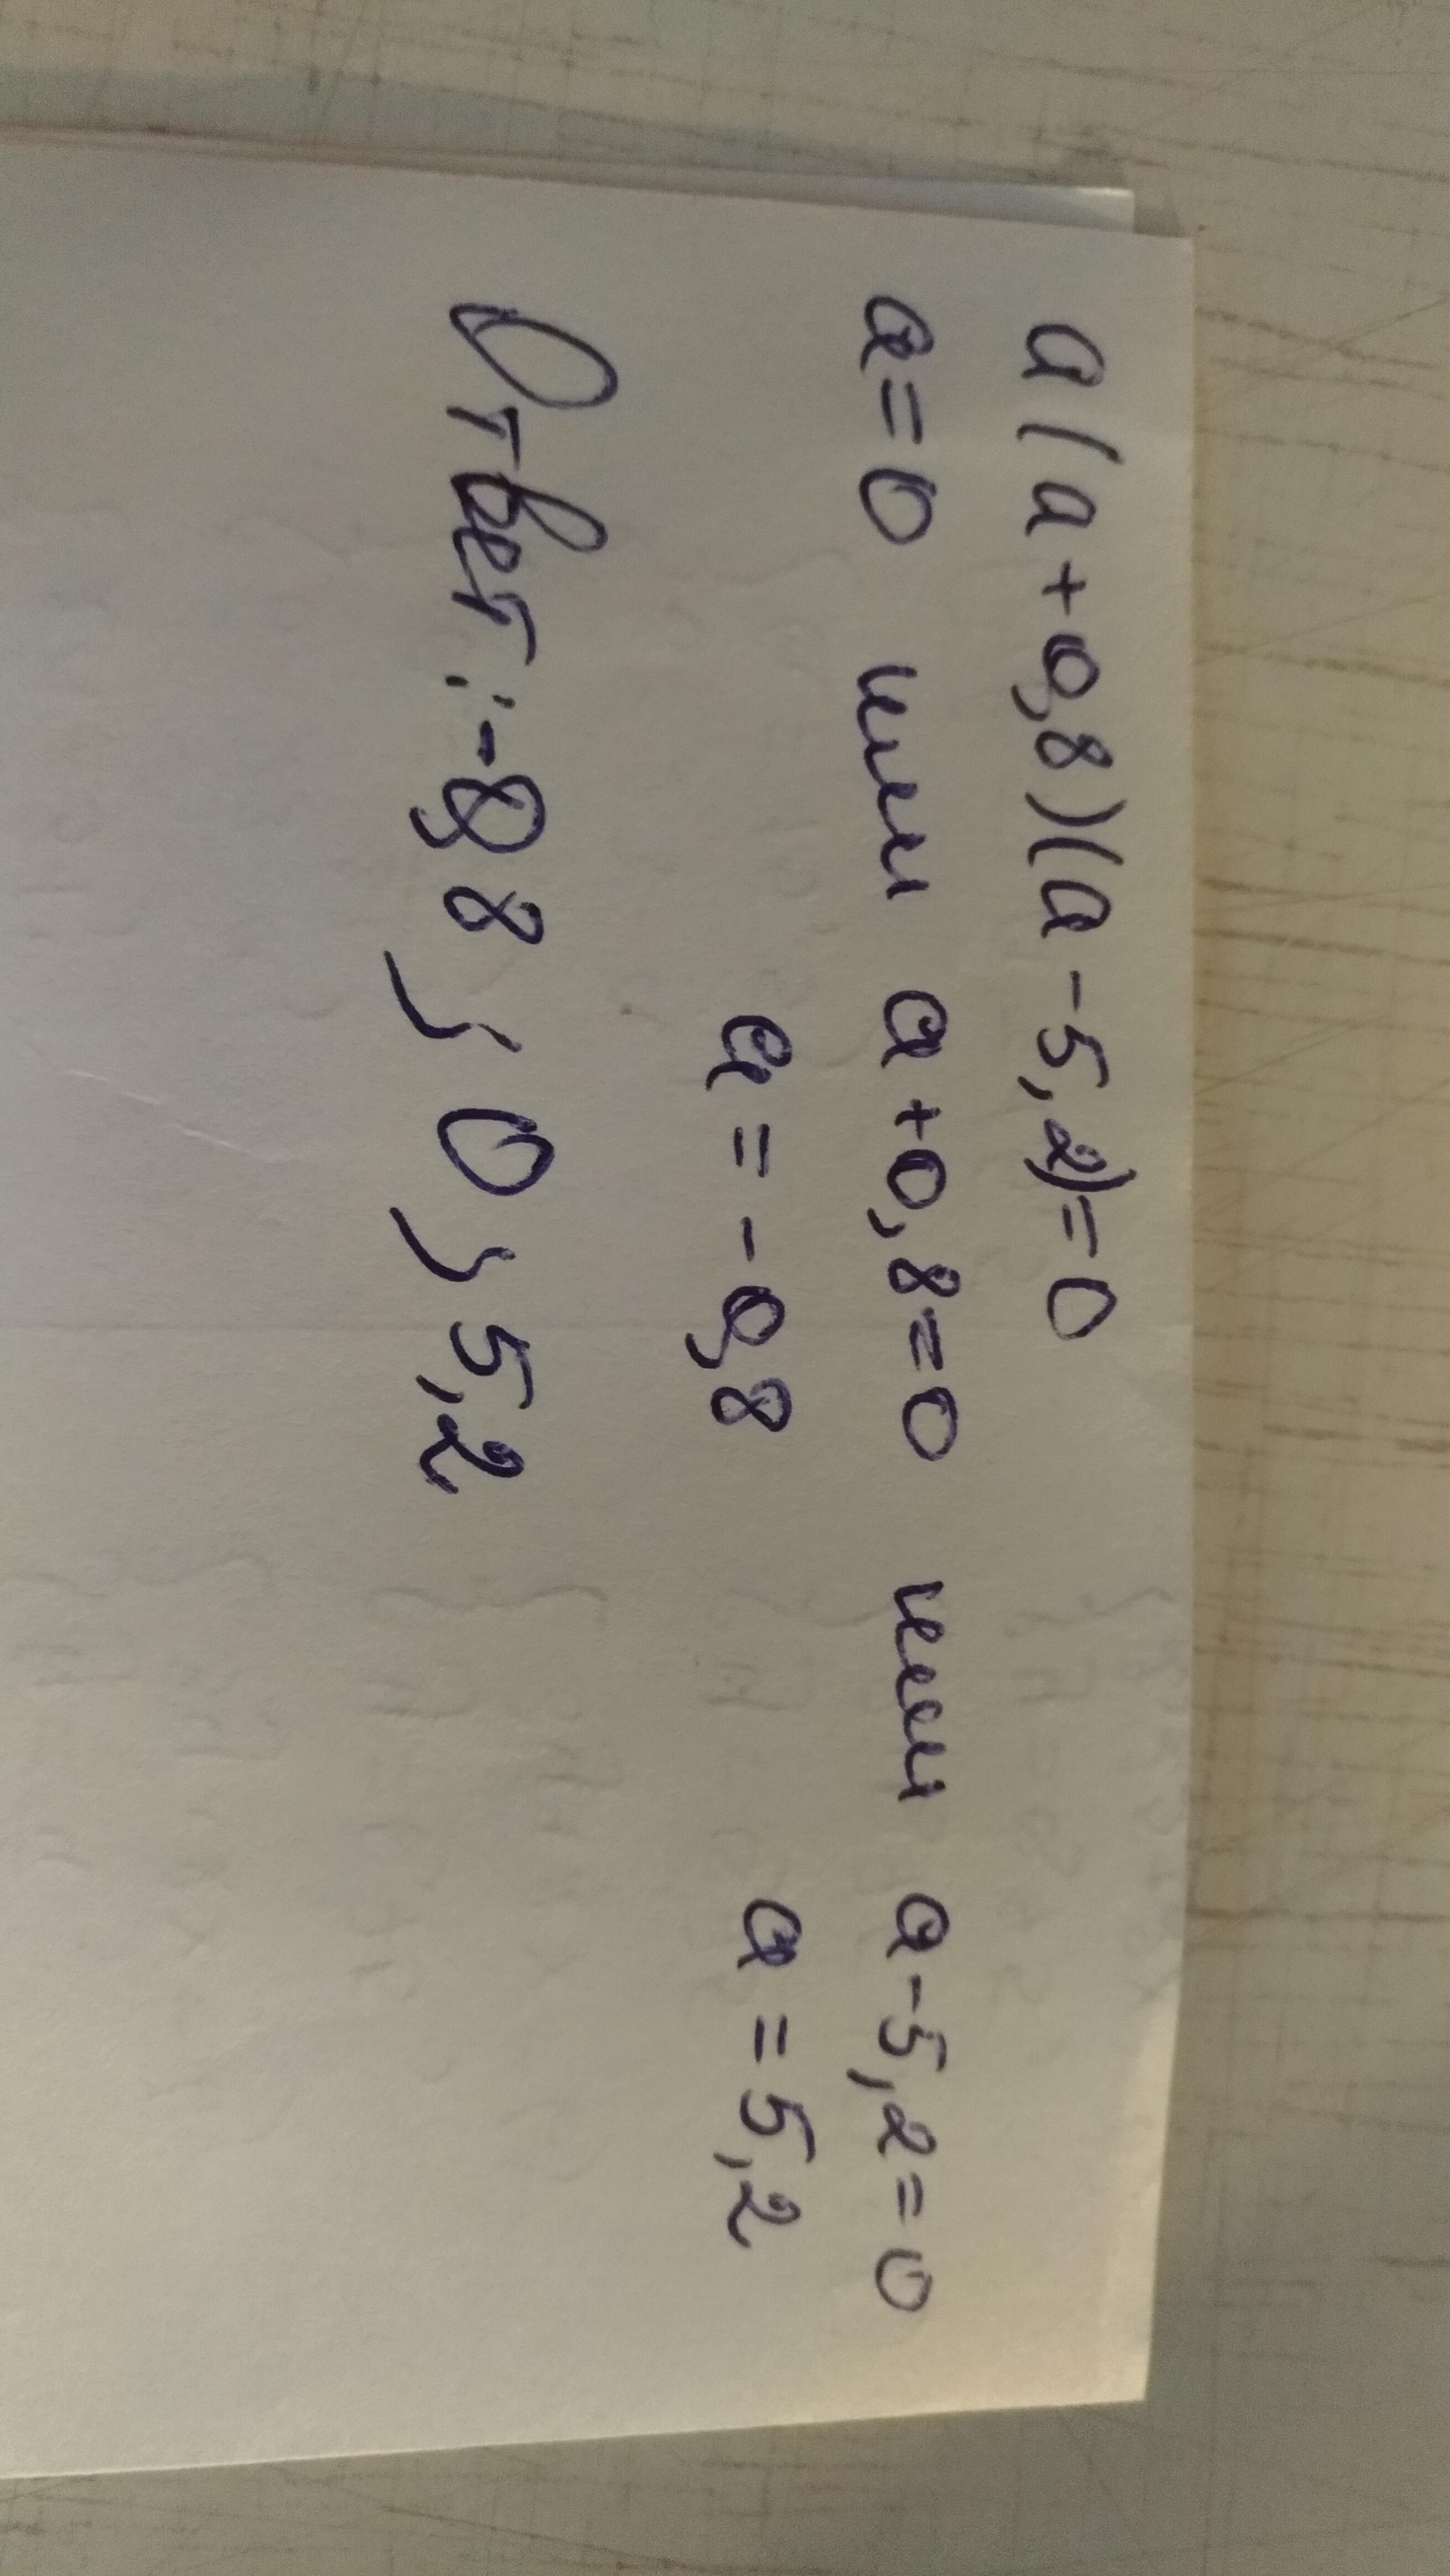 a(a+0,8)(a-5,2)=0
a=0 или a+0,8=0 или a-5,2=0
a=-0,8 a=5,2
Ответ: -0,8; 0; 5,2